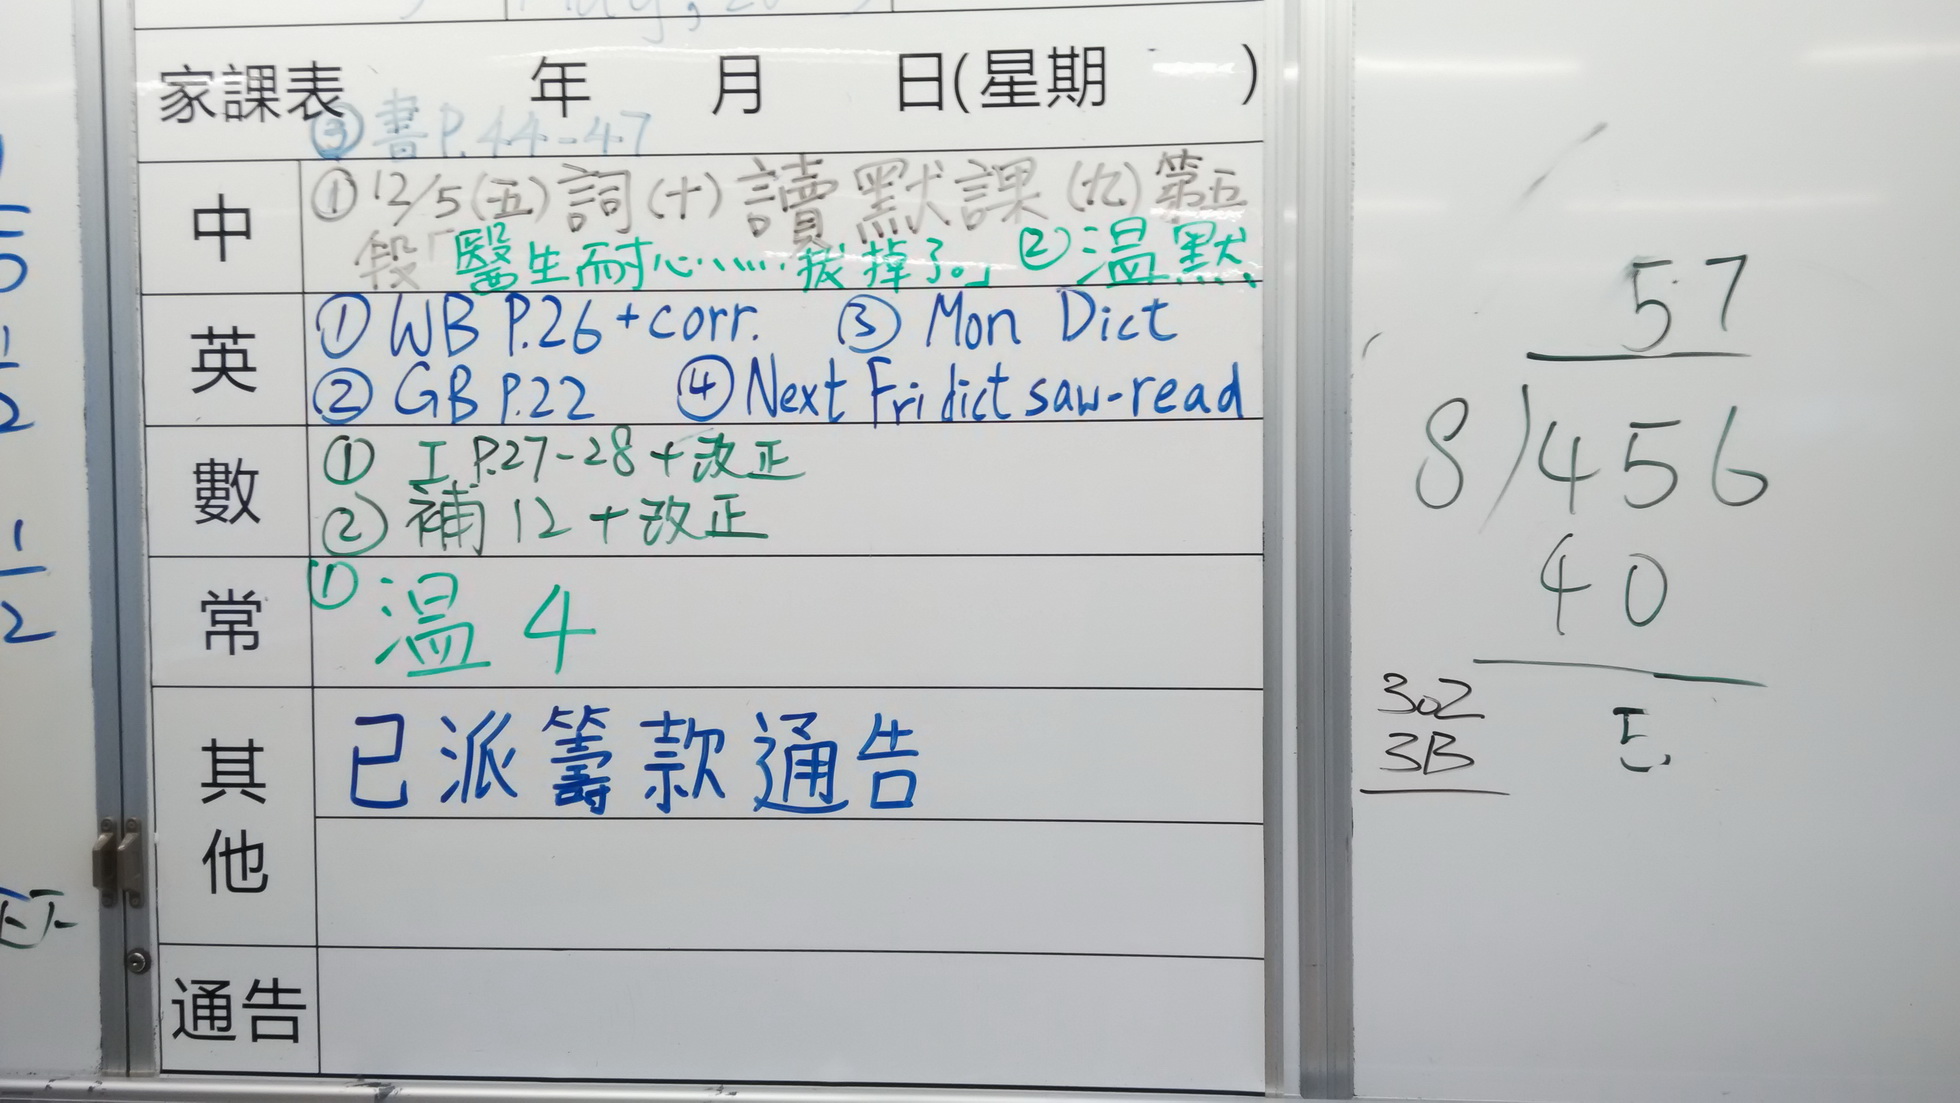 家課表 年 月 日(星期 )
③書P.44-47
中
①12/5(五)詞(十)讀默課(九)第五
段「醫生耐心……拔掉了。」②温默
英
①WB P.26+corr. ③Mon Dict
②GB P.22 ④Next Fri dict saw-read
數
①工P.27-28+改正
②補12+改正
常
①温4
其他
已派籌款通告
通告
57
8)456
40
5
302
3B
1
2
1
2